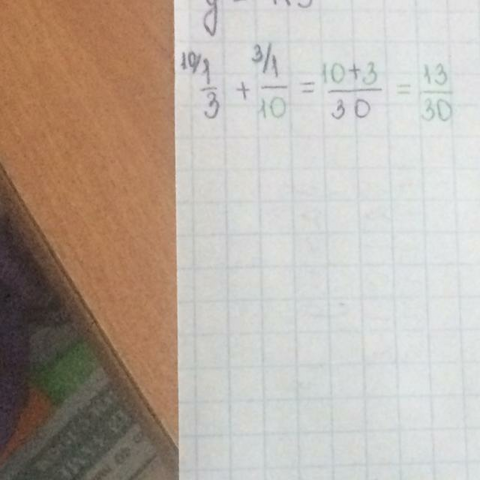 10/1/3 + 3/1/10 = 10+3/30 = 13/30